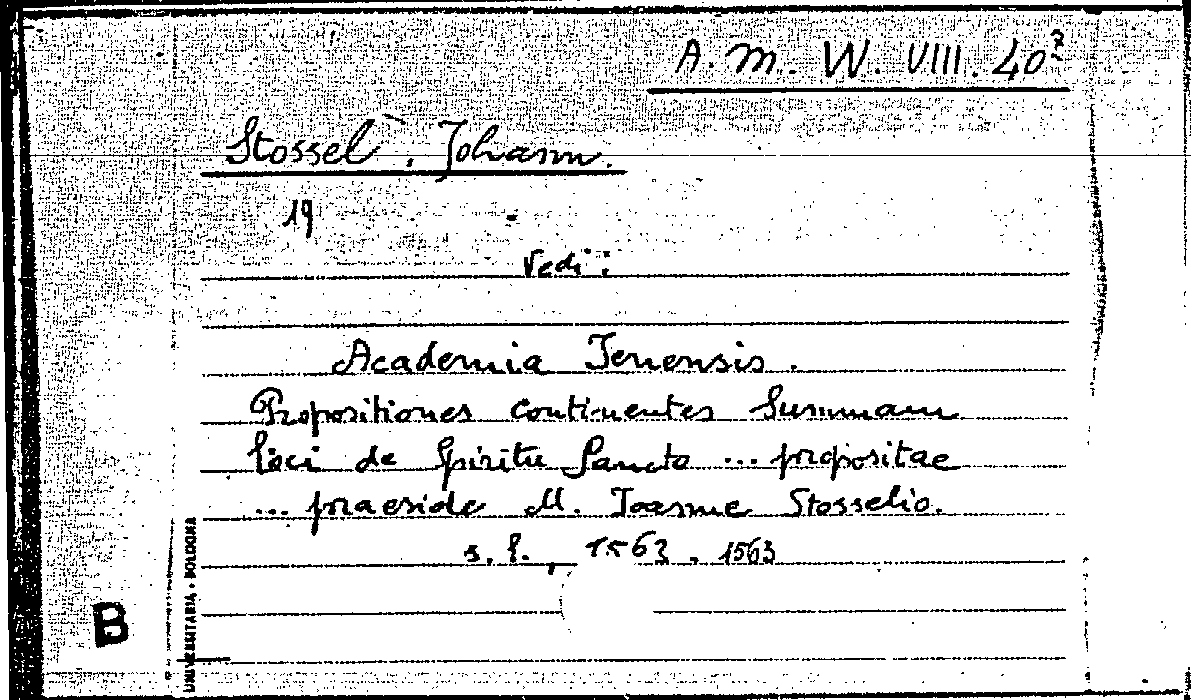 A. M. W. VIII. 40²
Stossel, Johann.
19
Vedi:
Academia Jenensis.
Propositiones continentes Summam
loci de Spiritu Sancto ... propositae
... praeside M. Joanne Stosselio.
s. l., 1563. 1563
B
UNIVERSITARIA. BOLOGNA